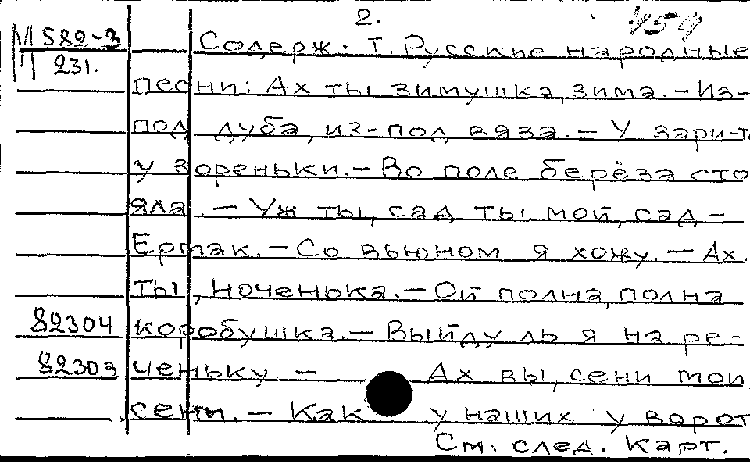 2.
М 582-3
П 231.
Содерж. Т. Русские народные
песни: Ах ты зимушка, зима. - Из-
под дуба, из-под вяза. - У зари-то
у зореньки. - Во поле берёза сто
яла. - Уж ты, сад ты мой, сад -
Ермак. - Со вьюном я хожу. - Ах
ты, ноченька. - Ой полна, полна
82304 коробушка. - Выйду ль я на ре-
82303 ченьку - Ах вы, сени мои
сени. - Как у наших у ворот
См. след. карт.